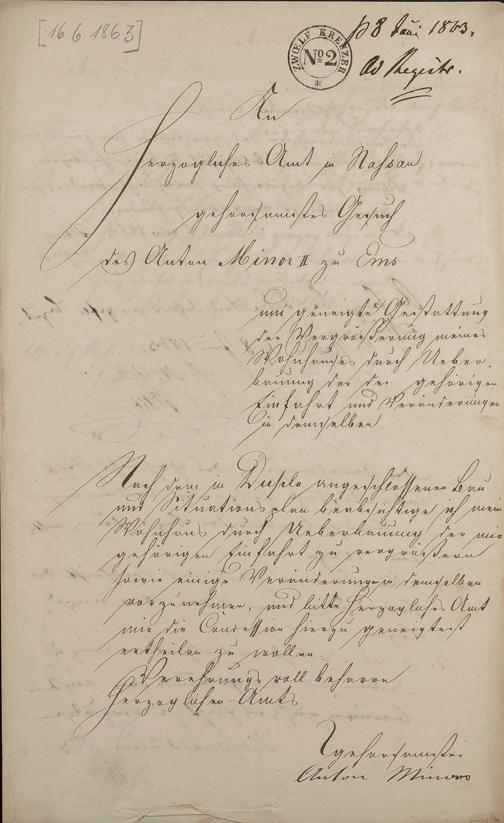 [16.6.1863]
ZWOELF KREUZER
No 2
p 8 Juni 1863.
Ad Registr.
An
Herzogliches Amt in Nassau
gehorsamstes Gesuch
des Anton Minor II zu Ems
um geneigte Gestattung
der Vergrößerung meines
Wohnhauses durch Ueber-
bauung der gehörigen
Einfahrt und Veränderungen
in demselben
Nach dem in Duplo angeschlossenen Bau
und Situationsplan beabsichtige ich mein
Wohnhaus durch Ueberbauung der mir
gehörigen Einfahrt zu vergrößern
sowie einige Veränderungen in demselben
vorzunehmen, und bitte Herzogliches Amt
mir die Concession hierzu geneigtest
ertheilen zu wollen.
Verehrungsvoll beharre
Herzoglichen Amts
gehorsamster
Anton Minor